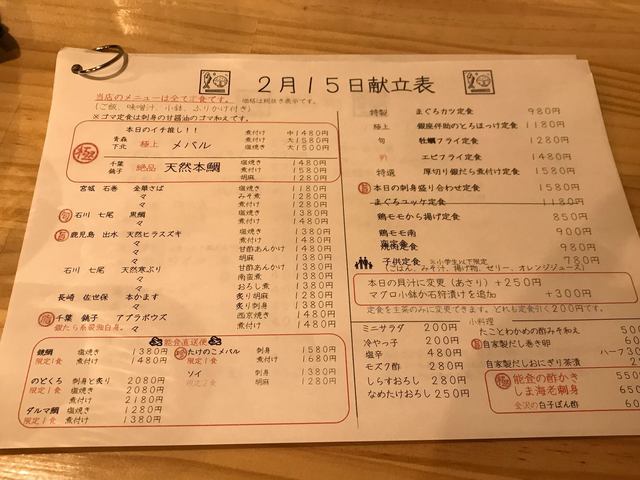 2月15日献立表
当店のメニューは全て定食です。 価格は税抜き表示です。
(ご飯、味噌汁、小鉢、ふりかけ付き)
※ゴマ定食は刺身の甘醤油のゴマ和えです。
本日のイチ推し！！
極
青森 下北 極上 メバル 煮付け 中1480円
煮付け 大1580円
塩焼き 大1500円
千葉 銚子 絶品 天然本鯛 塩焼き 1480円
煮付け 1580円
胡麻 1280円
宮城 石巻 金華さば 塩焼き 1180円
々 みそ煮 1280円
々 煮付け 1280円
旬 石川 七尾 黒鯛 塩焼き 1380円
々 煮付け 1480円
旨 鹿児島 出水 天然ヒラスズキ 塩焼き 1380円
々 煮付け 1480円
々 甘酢あんかけ 1480円
々 胡麻 1380円
石川 七尾 天然寒ぶり 甘酢あんかけ 1380円
々 南蛮煮 1380円
々 おろし煮 1380円
長崎 佐世保 本かます 炙り胡麻 1280円
々 炙り刺身 1380円
千葉 銚子 アブラボウズ 西京焼き 1480円
銀だら系最強白身。 々 煮付け 1480円
能登直送便
鏡鯛 塩焼き 1380円
限定1食 煮付け 1480円
のどくろ 刺身と炙り 2080円
限定1食 塩焼き 2080円
煮付け 2180円
ダルマ鯛 塩焼き 1280円
限定1食 煮付け 1380円
たけのこメバル 刺身 1580円
限定1食 煮付け 1680円
ソイ 刺身 1380円
限定2食 胡麻 1280円
特製 まぐろカツ定食 980円
極上 銀座伴助のとろほっけ定食 1180円
旬 牡蠣フライ定食 1280円
エビフライ定食 1480円
特選 厚切り銀だら煮付け定食 1580円
旨 本日の刺身盛り合わせ定食 1580円
まぐろユッケ定食 1180円
鶏モモから揚げ定食 850円
鶏モモ南蛮定食 900円
焼肉定食 980円
子供定食 ※小学生以下限定 780円
(ごはん、みそ汁、揚げ物、ゼリー、オレンジジュース)
本日の貝汁に変更（あさり）+250円
マグロ小鉢か石狩漬けを追加 +300円
定食を主菜のみに変更できます。どれも定食引く200円です。
小料理
ミニサラダ 200円
冷やっ子 200円
塩辛 480円
モズク酢 280円
しらすおろし 280円
なめたけおろし 250円
たことわかめの酢みそ和え
旨 自家製だし巻き卵
ハーフ
自家製だしおにぎり茶漬
極 能登の酢かき 550
しま海老刺身
金沢の白子ぽん酢